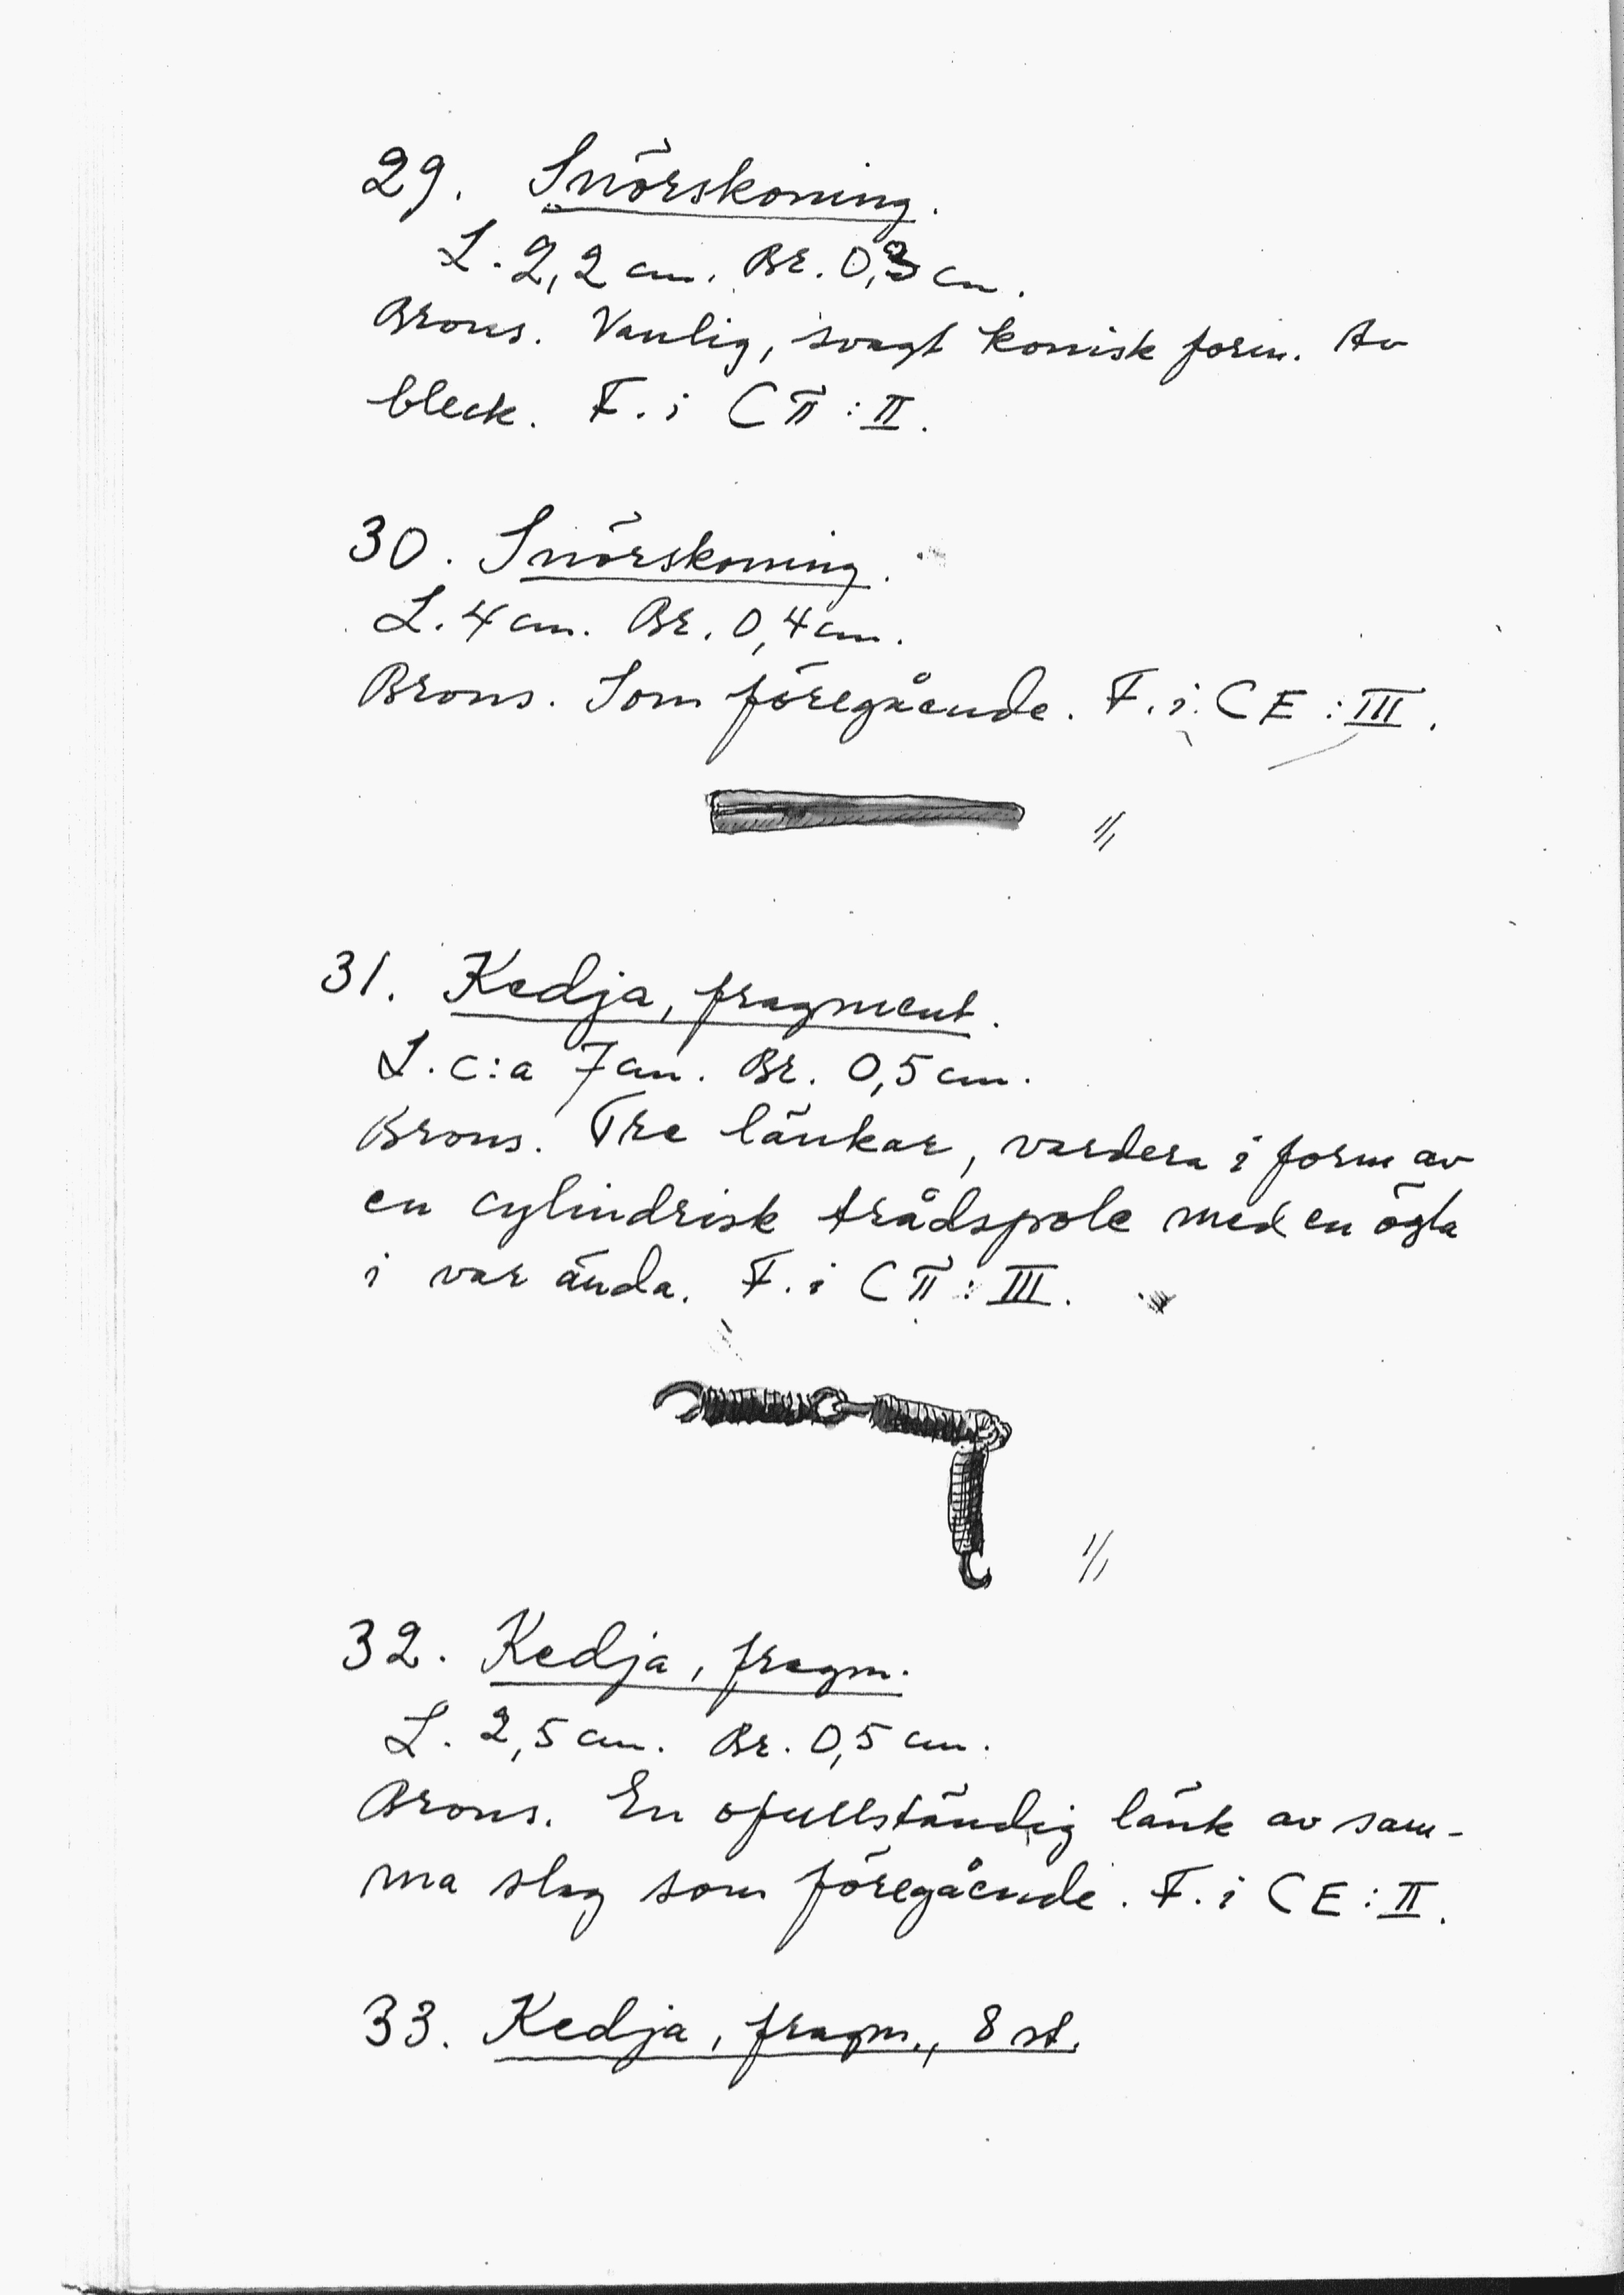 29. Snörskoning.
L. 2,2 cm. Br. 0,3 cm.
Brons. Vanlig, svagt konisk form. Av
bleck. F. i CTT : II.
30. Snörskoning.
L. 4 cm. Br. 0,4 cm.
Brons. Som föregående. F. i. CE : III.
1/1
31. Kedja, fragment.
L. c:a 7 cm. Br. 0,5 cm.
Brons. Tre länkar, vardera i form av
en cylindrisk trådspole med en ögla
i var ända. F. i CTT : III.
1/1
32. Kedja, fragm.
L. 2,5 cm. Br. 0,5 cm.
Brons. En ofullständig länk av sam-
ma slag som föregående. F. i CE : II.
33. Kedja, fragm., 8 st.